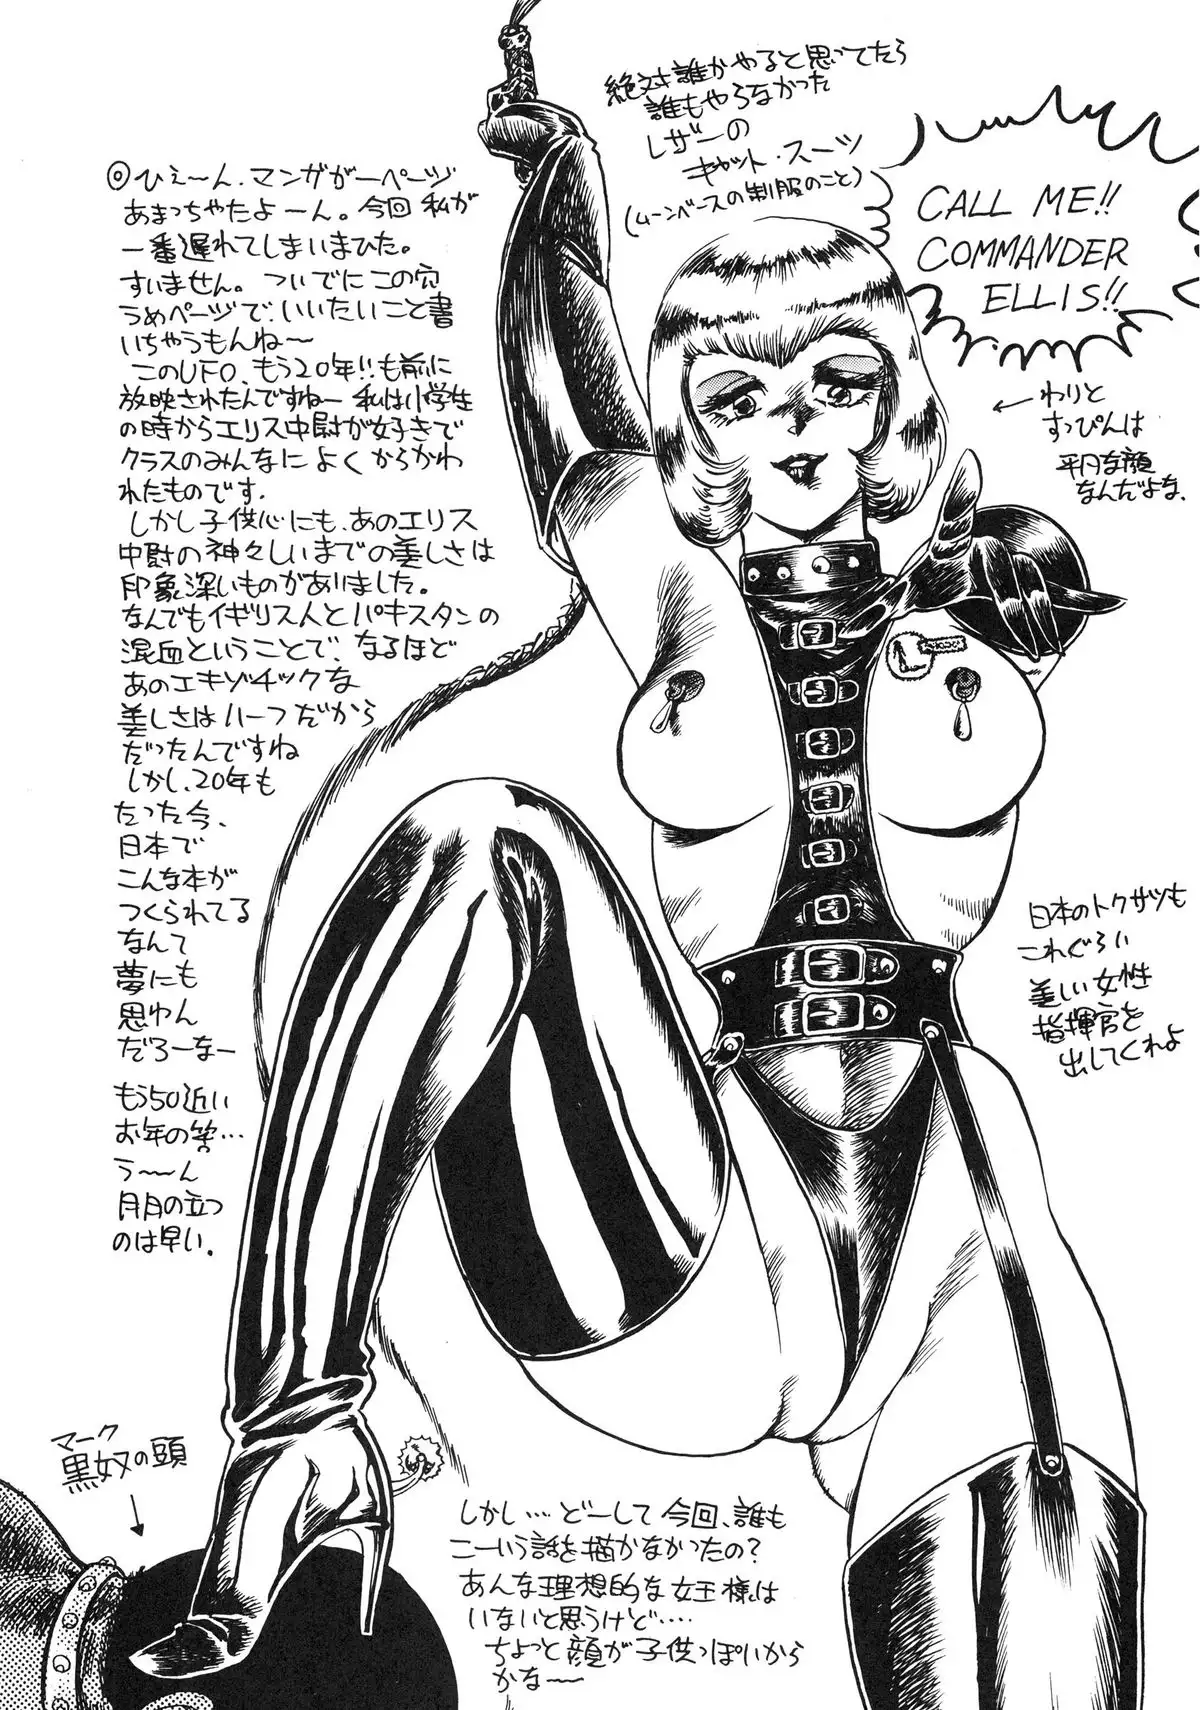 絶対誰かやると思ってたら
誰もやらなかった
レザーの
キャット・スーツ
(ムーンベースの制服のこと)
CALL ME!!
COMMANDER
ELLIS!!
◎ひぇ〜ん、マンガが一ページ
あまっちゃたよーん。今回私が
一番遅れてしまいまひた。
すいません。ついでにこの穴
うめページで、いいたいこと書
いちゃうもんね〜
このUFO、もう20年!!も前に
放映されたんですねー 私は小学生
の時からエリス中尉が好きで
クラスのみんなによくからかわ
れたものです.
しかし子供心にも、あのエリス
中尉の神々しいまでの美しさは
印象深いものがありました。
なんでもイギリス人とパキスタンの
混血ということで、なるほど
あのエキゾチックな
美しさはハーフだから
だったんですね
しかし、20年も
たった今、
日本で
こんな本が
つくられてる
なんて
夢にも
思わん
だろーなー
もう50近い
お年の筈…
う〜〜ん
月日の立つ
のは早い.
←わりと
すっぴんは
平凡な顔
なんだよな.
日本のトクサツも
これぐらい
美しい女性
指揮官を
出してくれよ
マーク
黒奴の頭
↓
しかし…どーして今回、誰も
こーいう話を描かなかったの?
あんな理想的な女王様は
いないと思うけど….
ちょっと顔が子供っぽいから
かな〜〜